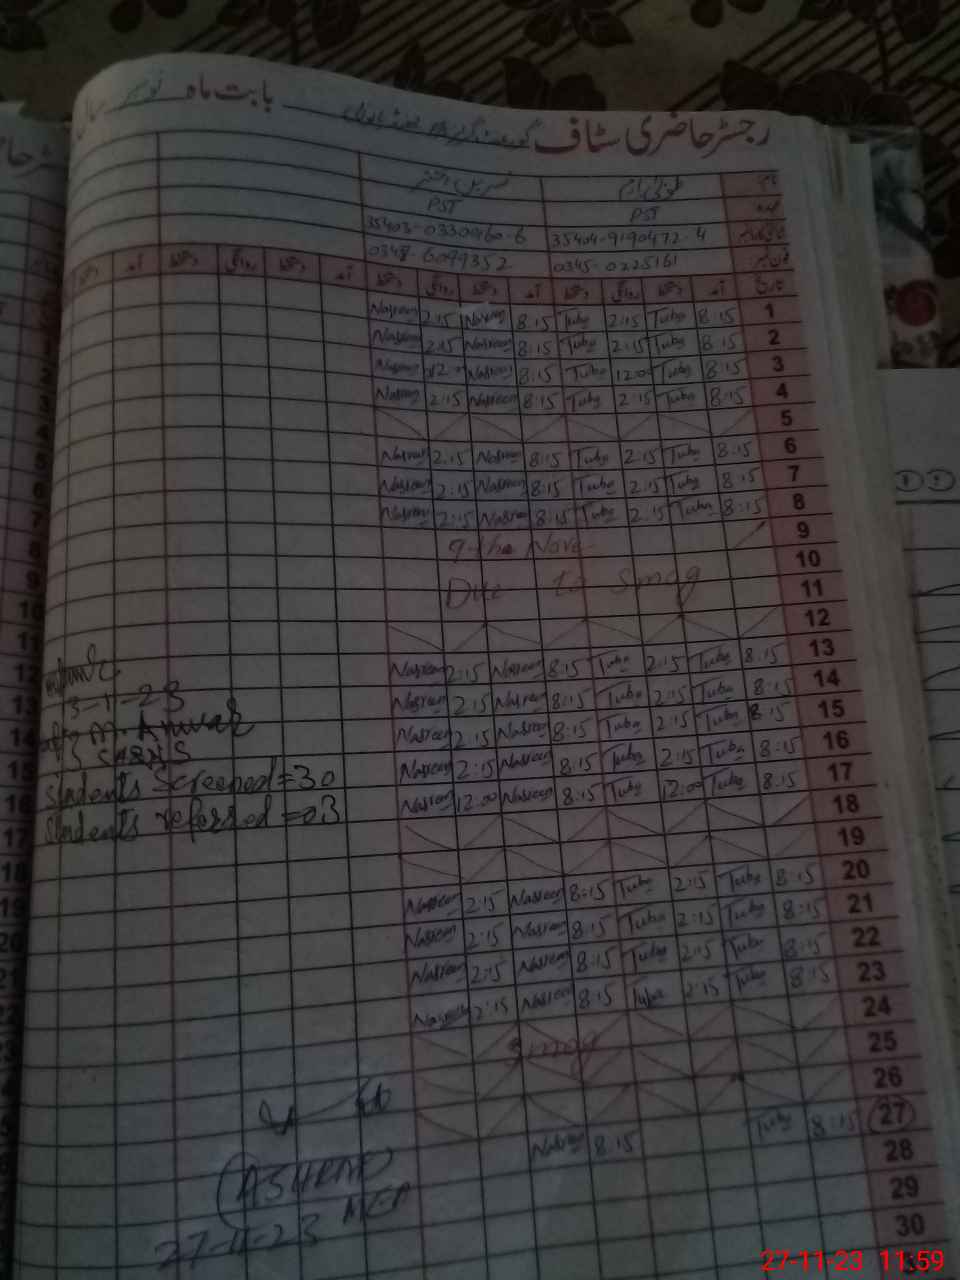 رجسٹر حاضری سٹاف بابت ماہ نومبر
نام
PST PST
35404-9190472-4 35403-0330960-6
0345-0225161 0348-6099352
تاریخ آمد دستخط روانگی دستخط آمد دستخط روانگی دستخط آمد دستخط روانگی دستخط آمد
1 8:15 Tuba 2:15 Tuba 8:15 Nasreen 2:15 Nasreen
2 8:15 Tuba 2:15 Tuba 8:15 Nasreen 2:15 Nasreen
3 8:15 Tuba 12:00 Tuba 8:15 Nasreen 12:00 Nasreen
4 8:15 Tuba 2:15 Tuba 8:15 Nasreen 2:15 Nasreen
5
6 8:15 Tuba 2:15 Tuba 8:15 Nasreen 2:15 Nasreen
7 8:15 Tuba 2:15 Tuba 8:15 Nasreen 2:15 Nasreen
8 8:15 Tuba 2:15 Tuba 8:15 Nasreen 2:15 Nasreen
9
9-the Nove
10
11
Due to Smog
12
13 8:15 Tuba 2:15 Tuba 8:15 Nasreen 2:15 Nasreen
14 8:15 Tuba 2:15 Tuba 8:15 Nasreen 2:15 Nasreen
15 8:15 Tuba 2:15 Tuba 8:15 Nasreen 2:15 Nasreen
16 8:15 Tuba 2:15 Tuba 8:15 Nasreen 2:15 Nasreen
17 8:15 Tuba 12:00 Tuba 8:15 Nasreen 12:00 Nasreen
18
19
20 8:15 Tuba 2:15 Tuba 8:15 Nasreen 2:15 Nasreen
21 8:15 Tuba 2:15 Tuba 8:15 Nasreen 2:15 Nasreen
22 8:15 Tuba 2:15 Tuba 8:15 Nasreen 2:15 Nasreen
23 8:15 Tuba 2:15 Tuba 8:15 Nasreen 2:15 Nasreen
24
Smog
25
26
27 8:15 Tuba 8:15 Nasreen
28
29
30
M. Anwar
SH&NS
Students Screened = 30
Students referred = 03
(ASHRAF)
MEA
27-11-23
27-11-23 11:59